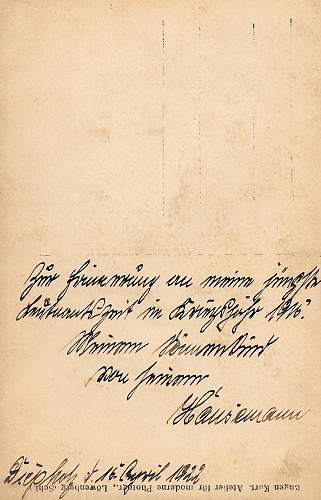 Zur Erinnerung an meine jüngste
Leutnantszeit im Kriegsjahr 1916.
Meinem Sonnenkind
von seinem
Hansemann
d. 16. April 1922
Eugen Kurt. Atelier für moderne Photogr., Löwenberg (Schl.)